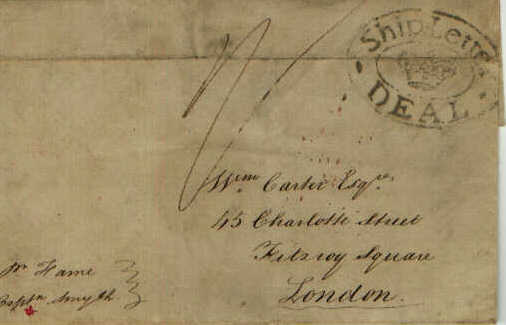 Ship Lette
DEAL
Wm Carter Esqre
45 Charlotte Street
Fitzroy Square
London
Pr Fame
Captn Smyth